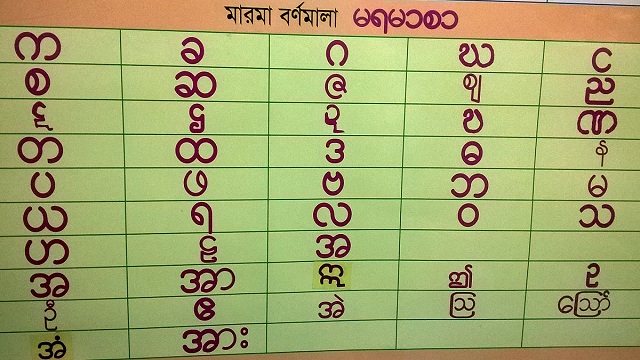 মারমা বর্ণমালা မရမာစာ
က ခ ဂ ဃ င
စ ဆ ဇ ဈ ည
ဋ ဌ ဍ ဎ ဏ
တ ထ ဒ ဓ န
ပ ဖ ဗ ဘ မ
ယ ရ လ ဝ သ
ဟ ဠ အ
အ အာ ဣ ဤ ဥ
ဦ ဧ အဲ ဩ ဪ
အံ အား